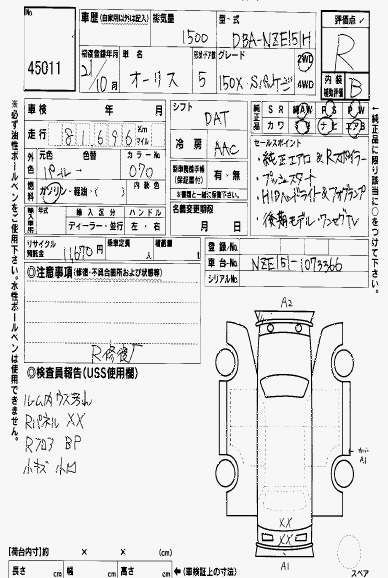 No
45011
車歴 (自家用以外は記入)
排気量
1500
型-式
DBA-NZE151H
評価点
R
初度登録年月
21年
10月
車名
オーリス
形状・ドア数
5
グレード
150X Sパッケージ
2WD
4WD
内装
補助評価
B
車検 年 月
走行 81696 Km
マイル
シフト
DAT
純正品
SR AW PS PW
カワ TV ナビ エアB
外色 元色 色替 カラーNo
パール→ 070
冷房
AAC
燃料 ガソリン・軽油・( )
内装色
有・無
(保証書付)
※書類と一緒に保管下さい。
年式 輸入区分 ハンドル
ディーラー・並行 左・右
名義変更期限
月 日
リサイクル預託金 11670円
乗車定員 人
積載量 t
セールスポイント
・純正エアロ & Rスポイラー
・プッシュスタート
・HIDヘッドライト & フォグランプ
・後期モデル・ワンセグTV
登録No.
車台No. NZE151-1073366
シリアルNo.
◎注意事項(修復・不具合箇所および状態等)
R修復有
◎検査員報告(USS使用欄)
ルーム内ウス汚れ
Rパネル XX
Rフロア BP
小キズ 小凹
A2
A1
XX
XX
A1
スペア
【荷台内寸】約 × × (cm)
長さ cm 幅 cm 高さ cm
←(車検証上の寸法)
※必ず油性ボールペンをご使用下さい。水性ボールペンは使用できません。
←純正品に限り該当に○をつけて下さい。